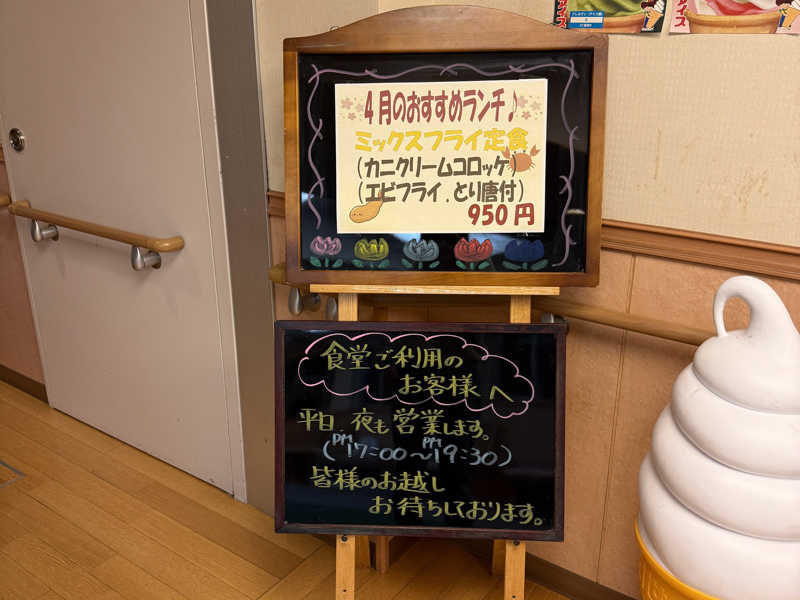 4月のおすすめランチ♪
ミックスフライ定食
(カニクリームコロッケ)
(エビフライ.とり唐付)
950円
食堂ご利用の
お客様へ
平日.夜も営業します。
(PM17:00~PM19:30)
皆様のお越し
お待ちしております。